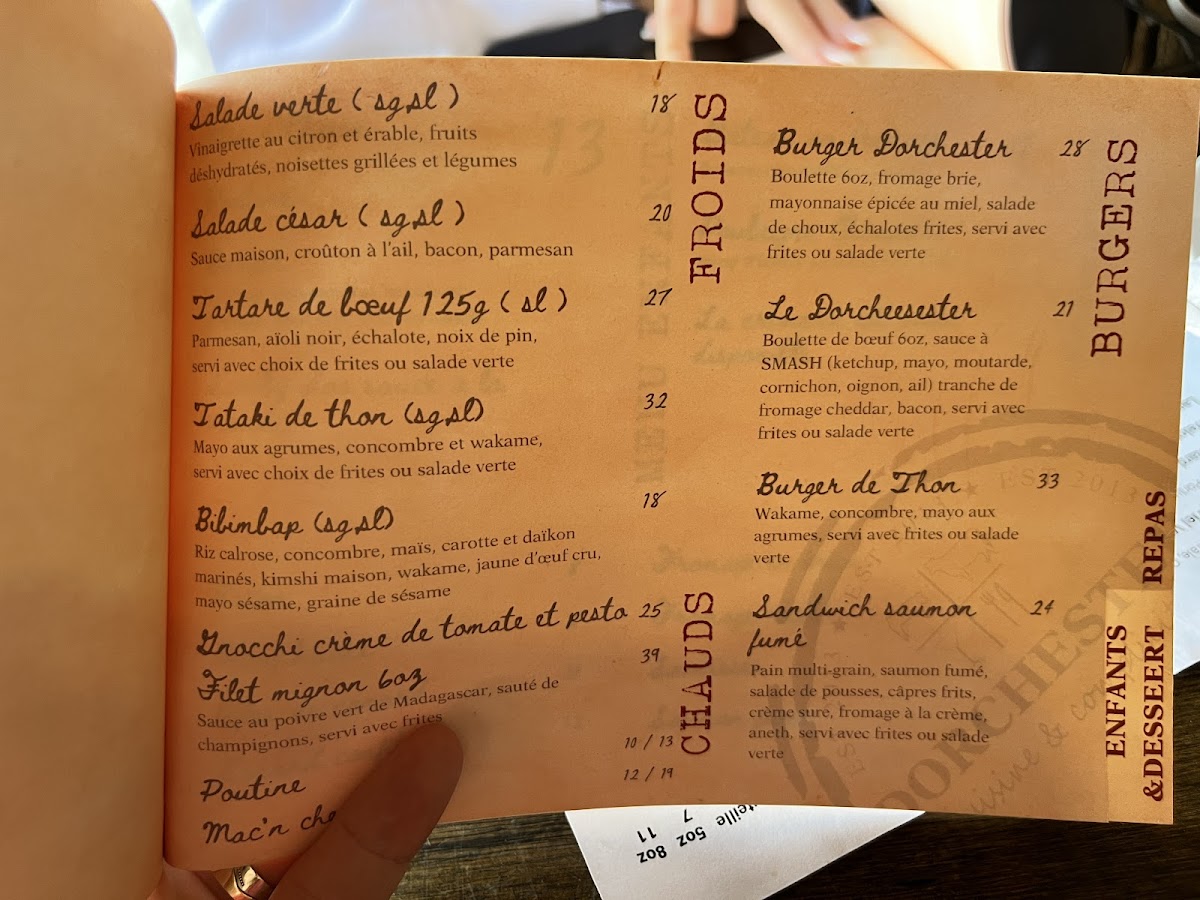 FROIDS
Salade verte ( sg,sl ) 18
Vinaigrette au citron et érable, fruits
déshydratés, noisettes grillées et légumes
Salade césar ( sg,sl ) 20
Sauce maison, croûton à l'ail, bacon, parmesan
Tartare de bœuf 125g ( sl ) 27
Parmesan, aïoli noir, échalote, noix de pin,
servi avec choix de frites ou salade verte
Tataki de thon (sg,sl) 32
Mayo aux agrumes, concombre et wakame,
servi avec choix de frites ou salade verte
Bibimbap (sg,sl) 18
Riz calrose, concombre, maïs, carotte et daïkon
marinés, kimshi maison, wakame, jaune d'œuf cru,
mayo sésame, graine de sésame
CHAUDS
Gnocchi crème de tomate et pesto 25
Filet mignon 6oz 39
Sauce au poivre vert de Madagascar, sauté de
champignons, servi avec frites
Poutine 10 / 13
Mac'n 12 / 19
BURGERS
Burger Dorchester 28
Boulette 6oz, fromage brie,
mayonnaise épicée au miel, salade
de choux, échalotes frites, servi avec
frites ou salade verte
Le Dorcheesester 21
Boulette de bœuf 6oz, sauce à
SMASH (ketchup, mayo, moutarde,
cornichon, oignon, ail) tranche de
fromage cheddar, bacon, servi avec
frites ou salade verte
Burger de Thon 33
Wakame, concombre, mayo aux
agrumes, servi avec frites ou salade
verte
Sandwich saumon 24
fumé
Pain multi-grain, saumon fumé,
salade de pousses, câpres frits,
crème sure, fromage à la crème,
aneth, servi avec frites ou salade
verte
REPAS
ENFANTS
&DESSEERT
EST 2013
DORCHESTE
5oz 8oz
7 11